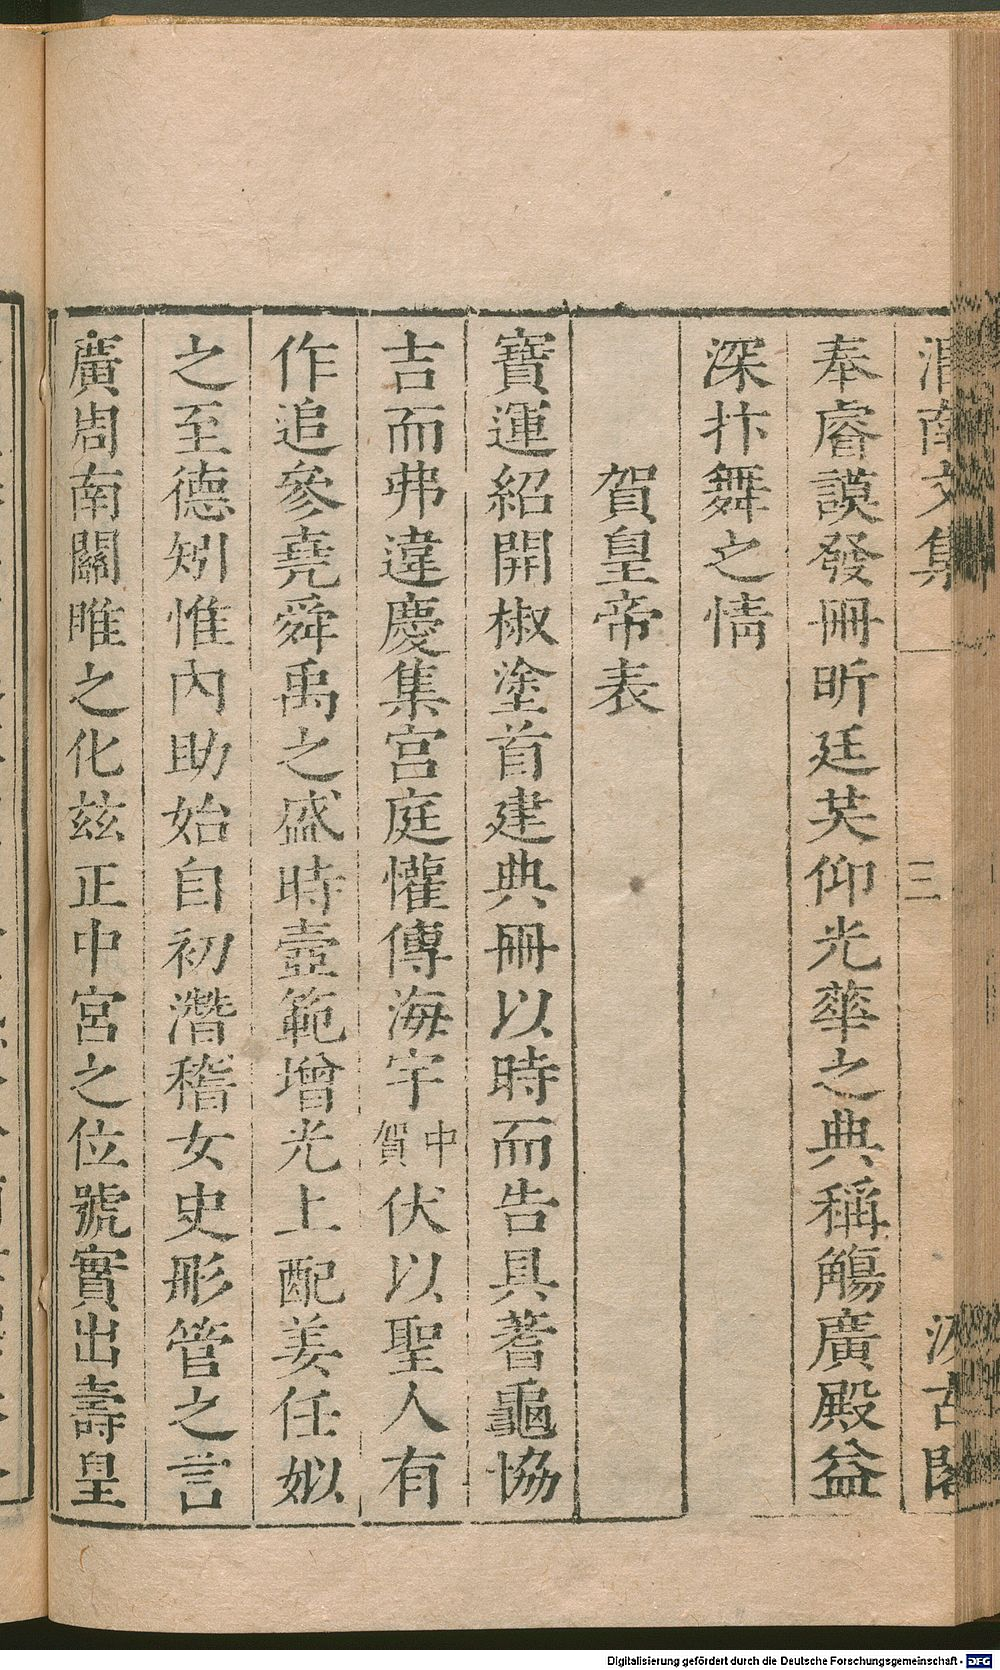 渭南文集 三 汲古閣
奉睿謨發冊昕廷英仰光華之典稱觴廣殿益
深抃舞之情
賀皇帝表
寶運紹開椒塗首建典冊以時而告具蓍龜協
吉而弗違慶集宮庭懽傳海宇中賀伏以聖人有
作追參堯舜禹之盛時壼範增光上配姜任姒
之至德矧惟內助始自初潛稽女史彤管之言
廣周南關雎之化玆正中宮之位號實出壽皇
Digitalisierung gefördert durch die Deutsche Forschungsgemeinschaft - DFG